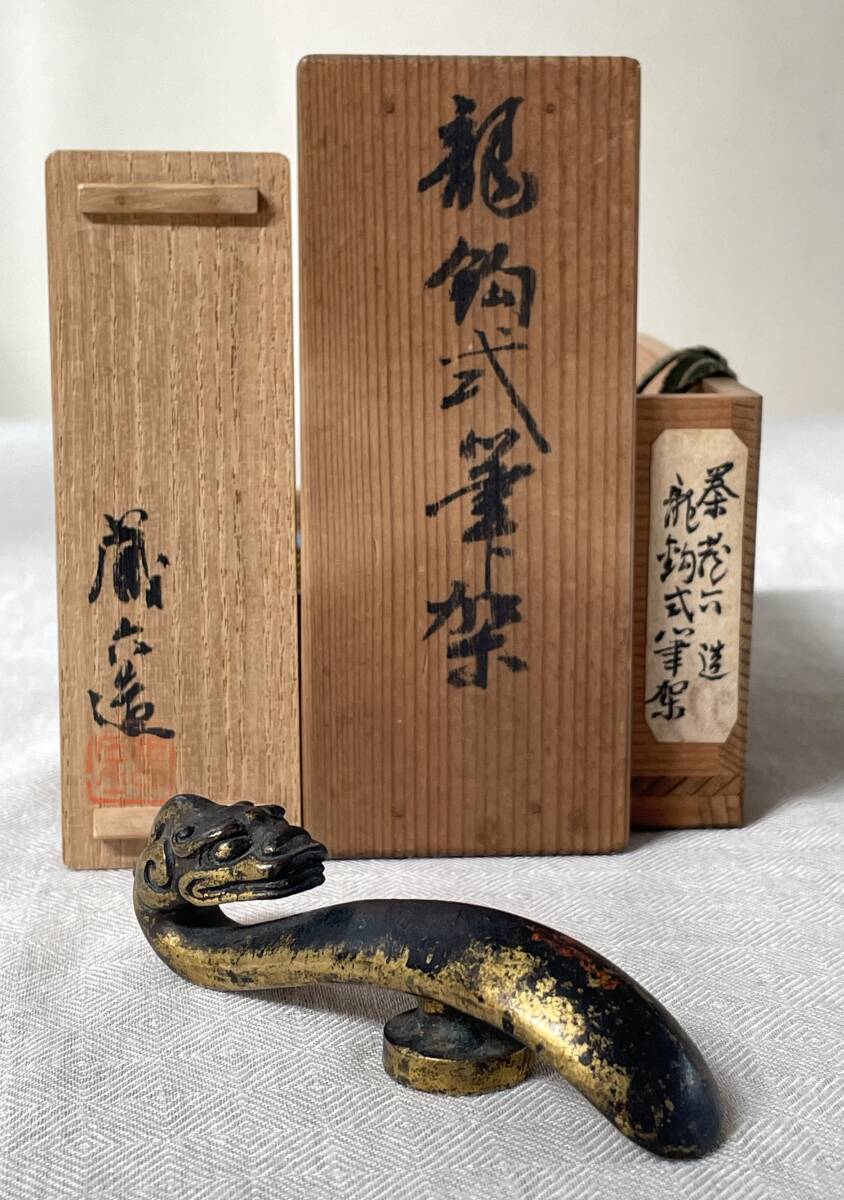 龍鈎式筆架
蔵六造
秦蔵六造
龍鈎式筆架